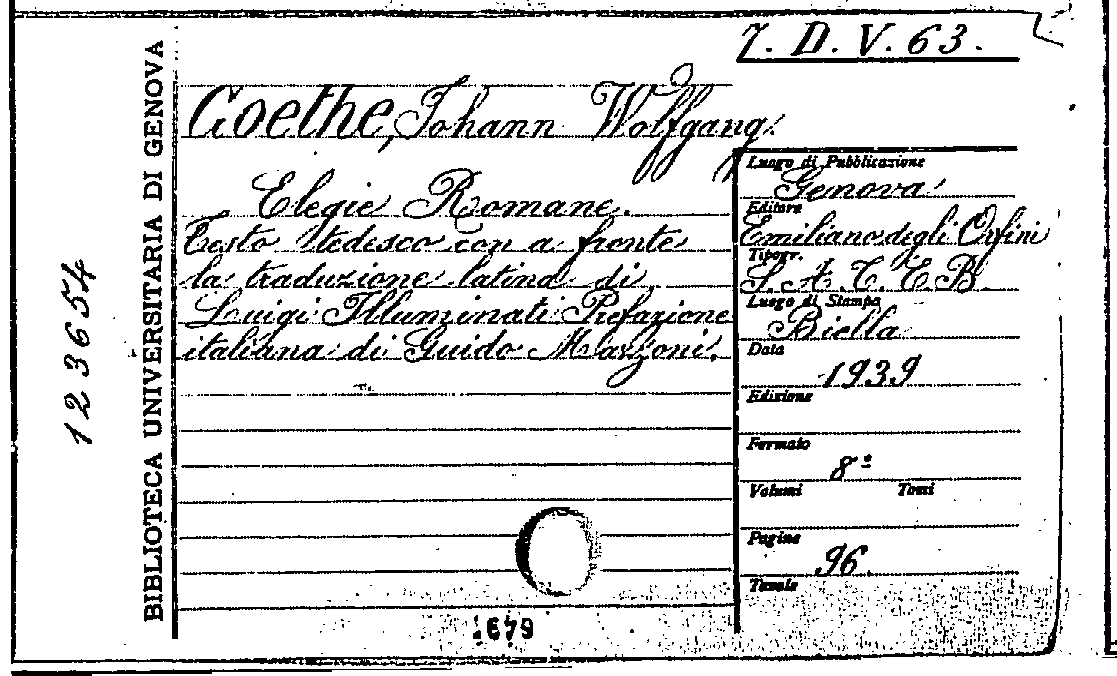 7. D. V. 63.
Goethe, Johann Wolfgang.
Elegie Romane.
Testo tedesco con a fronte
la traduzione latina di
Luigi Illuminati Prefazione
italiana di Guido Mazzoni.
Luogo di Pubblicazione
Genova
Editore
Emiliano degli Orfini
Tipogr.
S. A. T. E. B.
Luogo di Stampa
Biella
Data
1939
Edizione
Formato
8º
Volumi Tomi
Pagine
96
Tavole
BIBLIOTECA UNIVERSITARIA DI GENOVA
123654